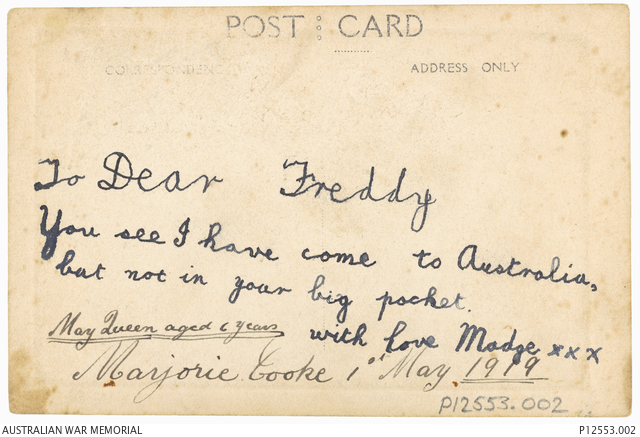 POST CARD
CORRESPONDENCE
ADDRESS ONLY
To Dear Freddy
You see I have come to Australia,
but not in your big pocket.
with love Madge xxx
May Queen aged 6 years
Marjorie Cooke 1st May 1919
P12553.002
AUSTRALIAN WAR MEMORIAL
P12553.002